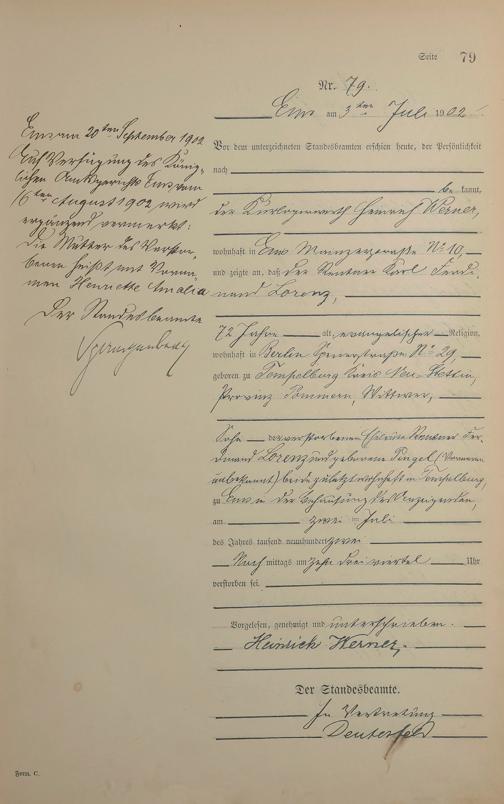 Seite 79
Nr. 79.
Ems am 3ten Juli 1902
Vor dem unterzeichneten Standesbeamten erschien heute, der Persönlichkeit
nach
be kannt,
der Heinrich Werner,
wohnhaft in Ems Mainzerstraße No 10,
und zeigte an, daß der Rentner Karl Ferdi-
nand Lorenz,
72 Jahre alt, evangelischer Religion,
wohnhaft in Berlin No 29,
geboren zu Tempelburg Kreis Neu-Stettin,
Provinz Pommern, Wittwer,
Sohn der verstorbenen Eheleute Rentner Fer-
dinand Lorenz und geborene (Vornamen
unbekannt) beide zuletzt wohnhaft in Tempelburg,
zu Ems in der Behausung des Anzeigenden,
am zwei Juli
des Jahres tausend neunhundert zwei
Nach mittags um zehn drei viertel Uhr
verstorben sei.
Vorgelesen, genehmigt und unterschrieben.
Heinrich Werner,
Der Standesbeamte.
In Vertretung
Ems am 20ten September 1902
Auf Verfügung des König-
lichen Amtsgerichts Ems vom
16ten August 1902 wird
ergänzend vermerkt:
Die Mutter des Verstor-
benen heißt mit Vorna-
men Henriette Amalia
Der Standesbeamte
Form. C.